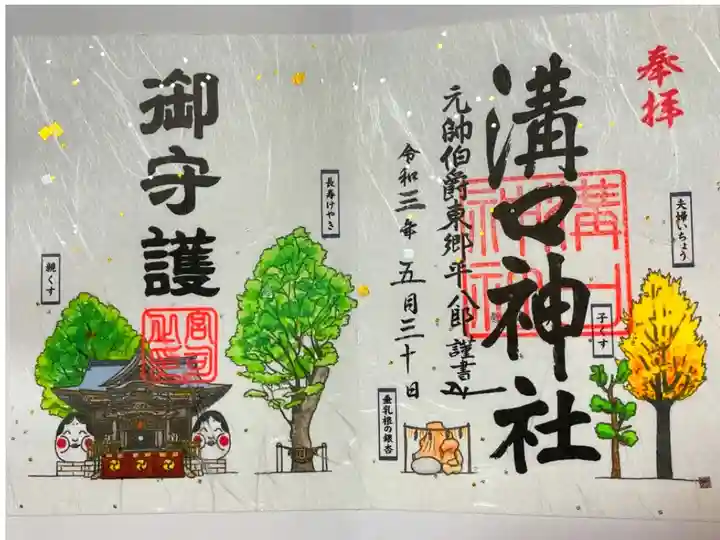 奉拝
溝口神社
溝口神社
元帥伯爵東郷平八郎謹書
令和三年五月三十日
夫婦いちょう
子くす
垂乳根の銀杏
長寿けやき
御守護
親くす